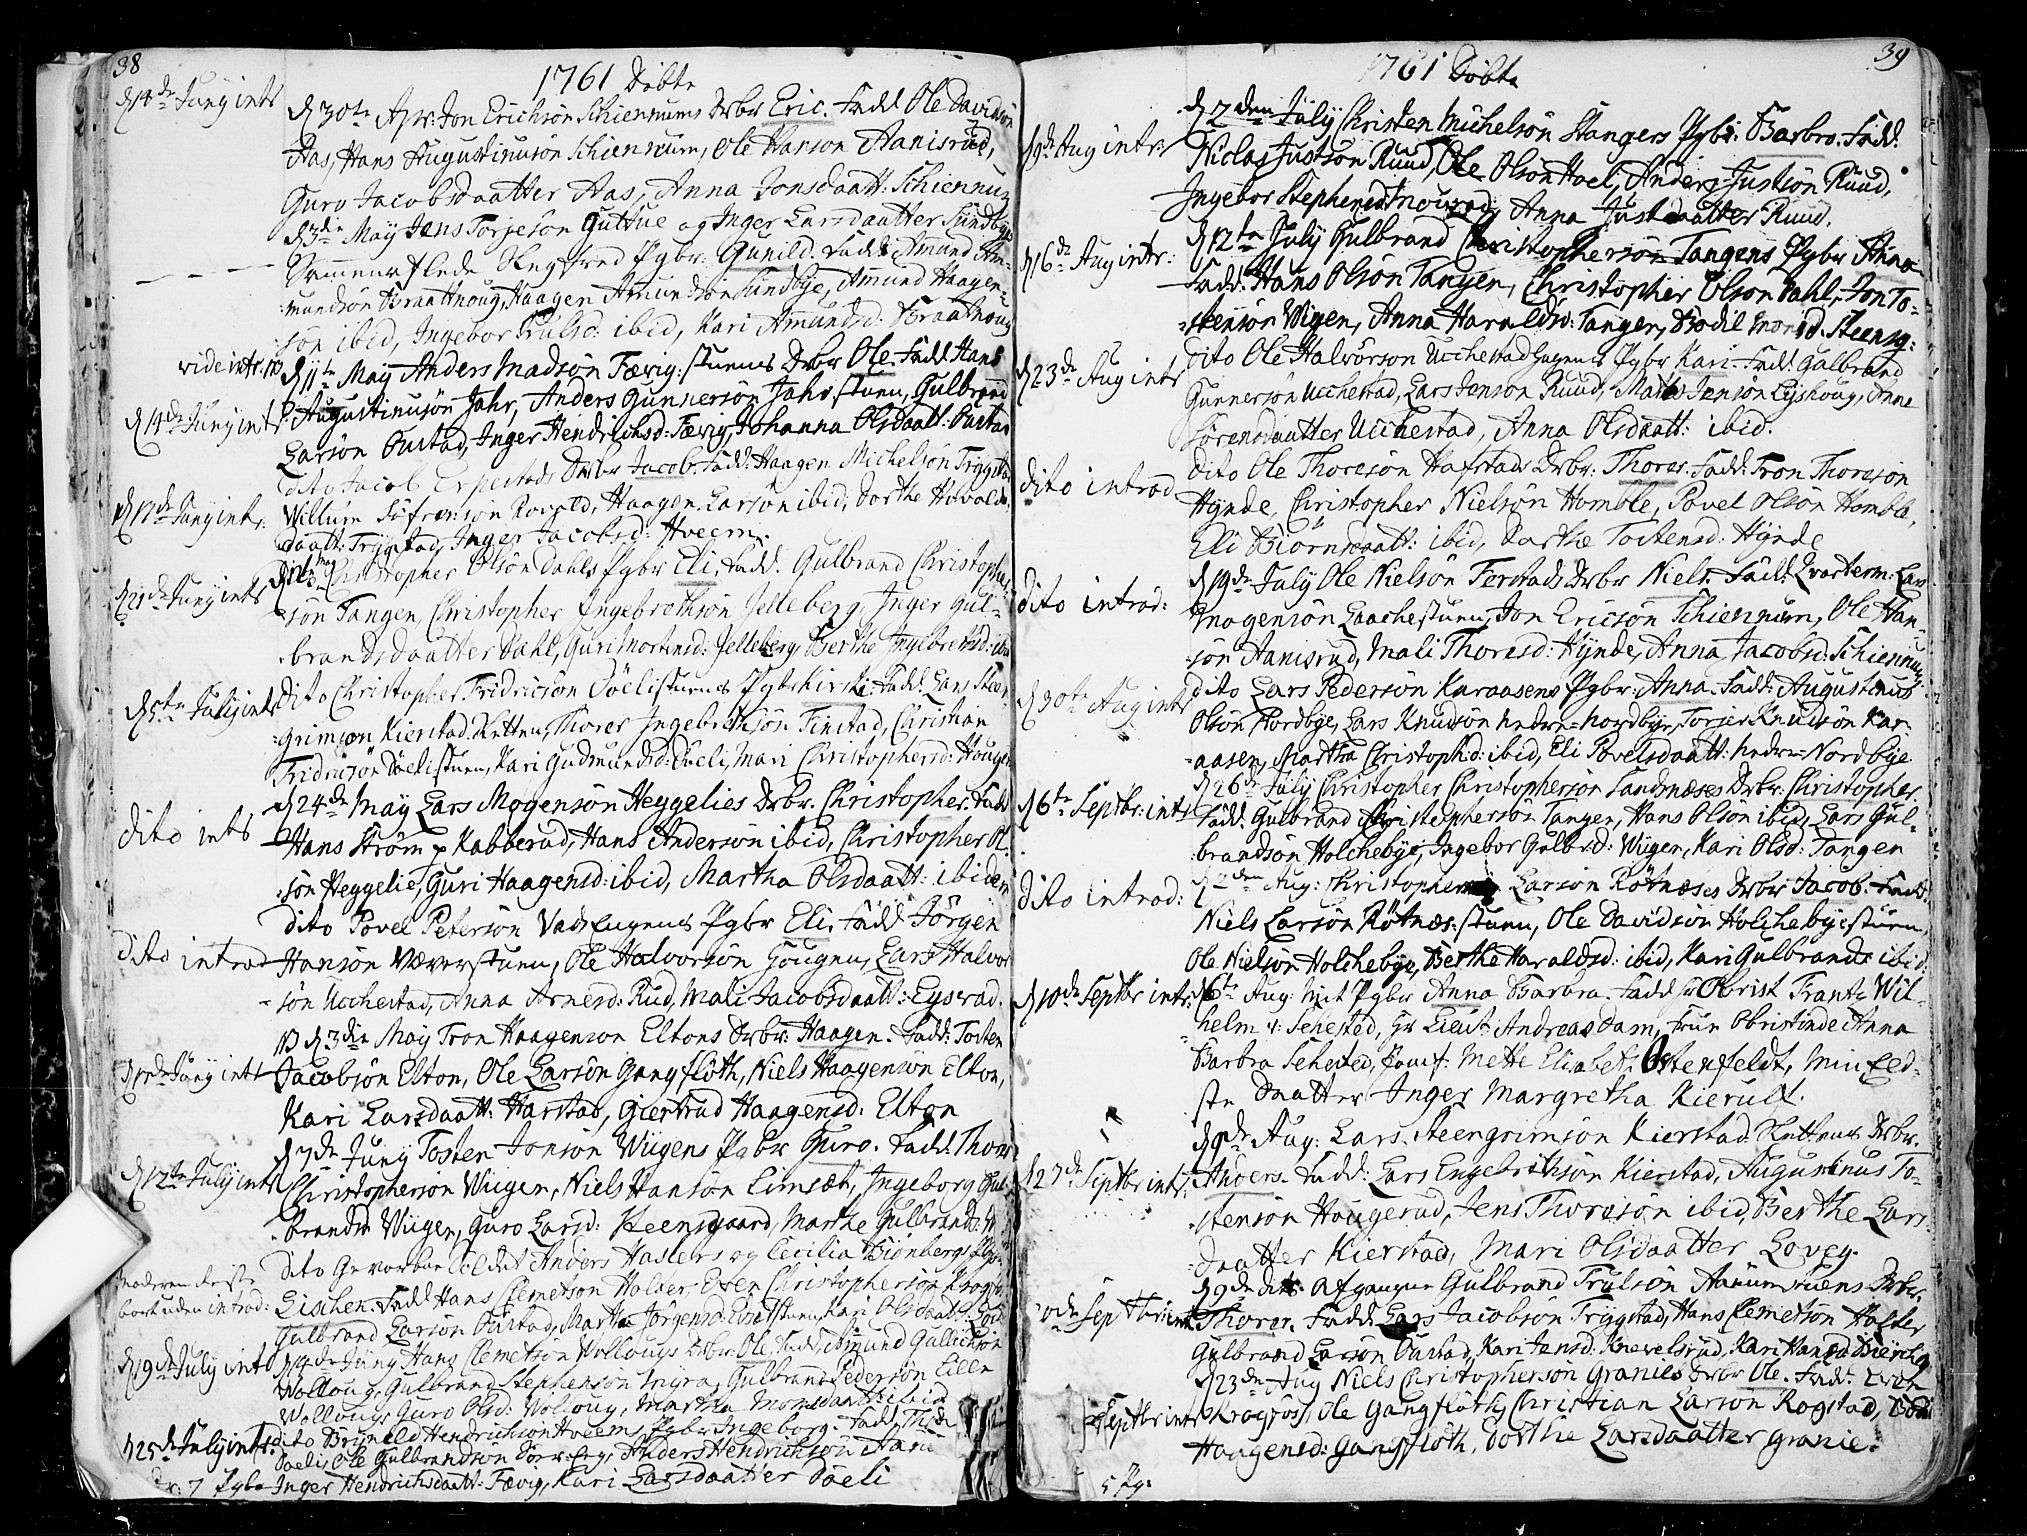 38
1761 Döbte
d 14de Juny intr
d 30te Apr. Jon Erichsön Schiennums Drbr Eric. Fadd Ole Davidsön
Aas, Hans Augustinusön Schiennum, Ole Hanson Aanisrud,
Guro Jacobsdaatter Aas, Anna Jonsdaatt: Schiennum
d 3die May Jens Torjesön Guttue og Inger Larsdaatter Sundbye
Pgbr: Gunild. Fadd: Amund Am-
mundsön Braathoug, Haagen Amundsön Sundbye, Amund Haagen-
sön ibid, Ingebor Trulsd: ibid, Kari Amundsd: Braathoug
vide intr:
d 11te May Anders Madsön Fævig: stuens Drbr Ole. Fadd Hans
d 14de Juny intr
Augustinusön Jahr, Anders Gunnersön Jahr stuen, Gulbrand
Larsön Oustad, Inger Hendrichsd: Fævig, Johanna Olsdaatt: Oustad
dito Jacob Erpestads Drbr Jacob. Fadd: Haagen Michelsön Trygstad
d 17de Juny intr:
Willum Söfrensön Haagen Larsön ibid, Dorthe Hovalds
daatt: Trygstad, Inger Jacobsd: Hveem.
d 21de Juny intr
Christopher Olsön Dahls Pgbr Eli. Fadd. Gulbrand Christopher
sön Tangen, Christopher Engebrethsön Jelleberg, Inger Gul-
brandsdaatter Dahl, Guri Mortensd: Jelleberg, Berthe Ingebrethsd: ibid
d 5te July intr
dito Christopher Fridricsön Döelistuens Pgbr Kirsti. Fadd: Lars Steen
grimsön Kierstad Retten, Thores Ingebrethsön Finstad, Christian
Fridricsön Döelistuen, Kari Gudmundsd: Döeli, Mari Christophersd: Hougen
dito intr
d 24de May Lars Mogensön Heggelies Drbr. Christopher. Fadd
Hans Ström p Kabberud, Hans Andersön ibid, Christopher Ol
sön Heggelie, Guri Haagensd: ibid, Martha Olsdaatt: ibidem
dito introd
dito Povel Petersön Vads Eugenes Pgbr Eli. Fadd Jörgen
Hansön Wæverstuen, Ole Halvorsön Gougen, Lars Halvor
sön Ucchestad, Anna Arnesd: Rud, Mali Jacobsdaatt: Eysrad.
d 3die May Tron Haagenson Eltons Drbr: Haagen. Fadd: Tosten
Juny intr
Jacobsön Elton, Ole Larsön Gangflöth, Niels Haagensön Elton,
Kari Larsdaatt: Harstad, Giertrud Haagensd: Elton
d 7de Juny Tosten Jonsön Wiigens Pgbr Guro. Fadd: Thor
d 12te July intr
Christopherson Wiigen, Niels Hansön Limsæt, Ingeborg Gul
brandsd Wiigen, Guro Larsd: Steensgaard, Marthe Gulbrandsd:
Moderen reiste
bort uden introd:
dito Gevorben Soldat Anders Haslers og Cecilia Biönbergs
Lischen. Fadd Hans Clemetson Holter, Even Christophersön Krogfos
Gulbrand Larsön Oustad, Martha Jörgensd: Kari Olsdaatt:
d 19de July intr
d 14de Juny Hans Clemetsön Wollougs Drbr. Ole, Fadd, Amund Gullichsön
Wolloug, Gulbrand Stephensön Myra, Gulbrand Pedersön Eilen
Wolloug, Guro Olsd: Wolloug, Martha ibid
d 25de July intr:
dito Brynild Hendrichsön Hveems Pgbr Ingeborg. Fadd,
Döeli, Ole Gulbrandsön Anders Hendrichsön
Dr: 7 Pgbr
Inger Hendrichsdaatt: Fævig, Kari Larsdaatter Döeli
39
1761 Döbte
d 2den July Christen Michelsön Stangers Pgbr: Barbro. Fadd.
d 9de Aug intr:
Niclas Justsön Ruud, Ole Olsön Hoel, Anders Justsön Ruud,
Ingebor Anna Justdaatter Ruud.
d 16de Aug intr:
d 12te July Gulbrand Christophersön Tangens Pgbr Anna
Fadd: Hans Olsön Tangen, Christopher Olsön Dahl, Jon To-
stensön Wigen, Anna Haraldsd: Tangen, Bodil Steensg:
d 23de Aug intr
dito Ole Halvorson Ucchestad Pgbr Kari. Fadd: Gulbrand
Gunnersön Ucchestad, Lars Jenson Ruud, Mads Jensön Eyshoug, Anne
Sörensdaatter Ucchestad, Anna Olsdaatt: ibid.
dito introd
dito Ole Thoresön Hafstads Drbr: Thores. Fadd: Tron Thoresön
Hynde, Christopher Nielsön Homble, Povel Olsön Homble,
Eli Biörnsdaatt: ibid, Dorthe Tostensd: Hynde
dito introd:
d 19de July Ole Nielsön Ferstads Drbr Niels. Fadd: Qvarterm: Lars
Mogensön Laachestuen, Jon Ericsön Schiennum, Ole Han-
sön Aanisrud, Mali Thoresd: Hynde, Anna Jacobsd: Schiennum
d 30te Aug intr
dito Lars Pedersön Karaasens Pgbr: Anna. Fadd: Augustinus
Olsön Nordbye, Lars Knudsön nedre-Nordbye, Torjer Knudsön Kar-
aasen, Martha Christophd: ibid, Eli Povelsdaatt: nedre-Nordbye
d 6te Septbr: intr
d 26de July Christopher Christophersön Sandsnæses Drbr: Christopher.
Fadd: Gulbrand Christophersön Tangen, Hans Olsön ibid, Lars Gul-
brandsön Holchebye, Ingebor Gulbrd: Wiigen, Kari Olsd: Tangen
dito introd:
d 2den Aug: Christopher Larsön Rötnæses Drbr Jacob. Fadd:
Niels Larsön Rötnæs: stuen, Ole Davidsön Holchebyestuen,
Ole Nielsön Holchebye, Berthe Haraldsd: ibid, Kari Gulbrandsd ibid:
d 10de Septbr intr:
d 6te Aug: Mit Pgbr Anna Barbra. Fadd hr Obrist Frantz Wil-
helm v: Sehested, Hr Lieut: Andreas Dam, Frue Obristinde Anna
Barbra Sehested, Jomf: Mette Elisabet: Ostenfeldt, Min Eld-
ste Daatter Inger Margretha Kierulf.
d 9de Aug: Lars Steengrimsön Kierstad Rettens Drbr.
d 27de Septbr intr:
Anders. Fadd: Lars Engebrethsön Kierstad, Augustinus To-
stensön Haugerud, Jens Thoresön ibid, Berthe Lars
daatter Kierstad, Mari Olsdaatter Lovey.
d 9de dito Afgangne Gulbrand Trulsön Aanumstuens Drbr.
Septbr intr
Thorer. Fadd: Lars Jacobsön Trygstad, Hans Clemetsön Holter
Gulbrand Larsön Oustad, Kari Jensd: Knevelsrud, Kari Hansd
d 23de Aug Niels Christophersön Granies Drbr Ole. Fadd: Even
Septbr intr
Krogfos, Ole Gangflöth, Christian Larsön Rogstad,
Haagensd: Gangflöth, Dorthe Larsdaatter Granie.
5 Pg: